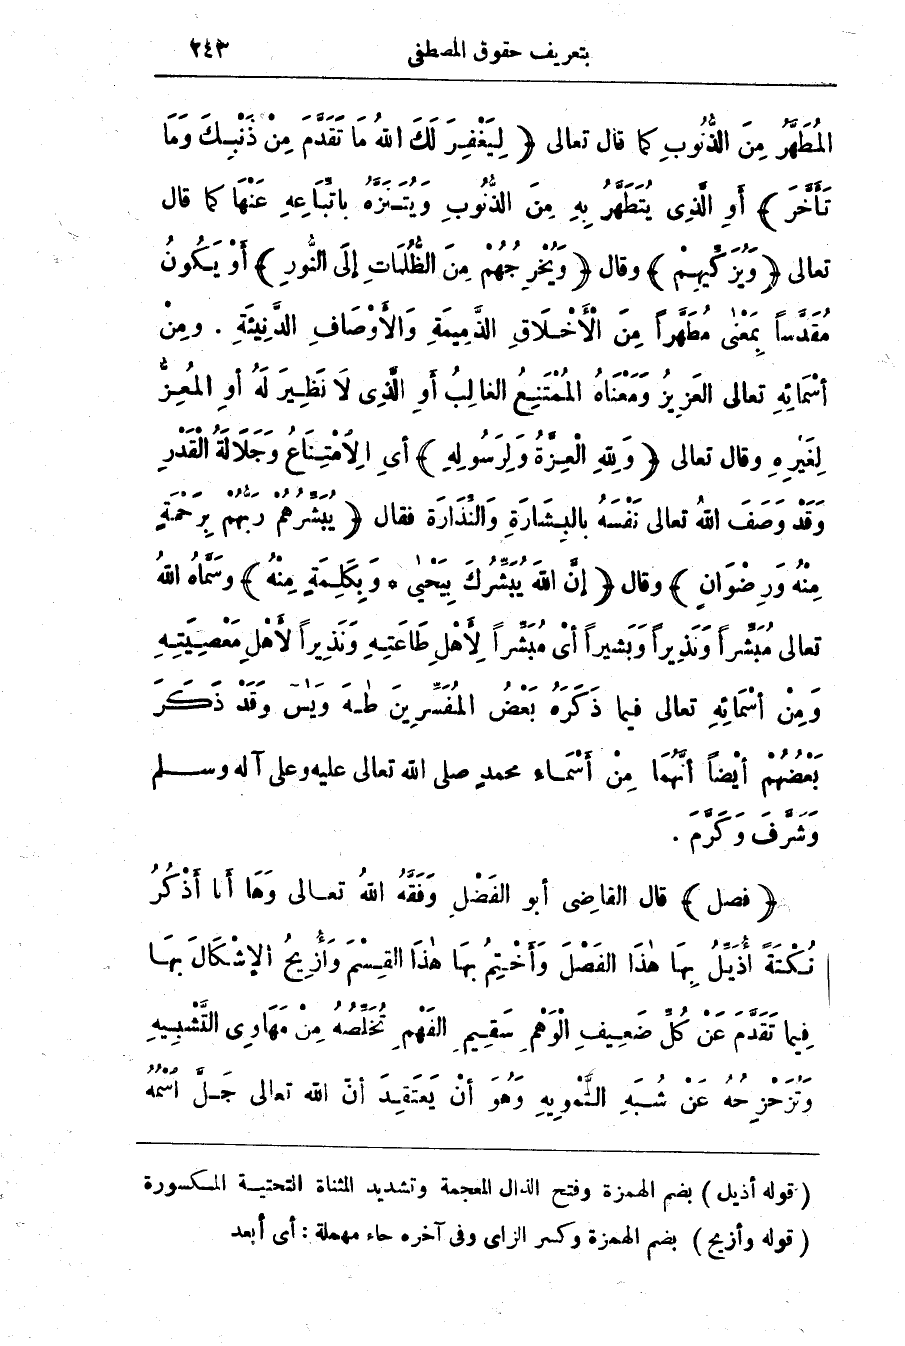 بتعريف حقوق المصطفى ٢٤٣
المُطَهَّرُ مِنَ الذُّنُوبِ كما قال تعالى ﴿ لِيَغْفِرَ لَكَ اللهُ مَا تَقَدَّمَ مِنْ ذَنْبِكَ وَمَا
تَأَخَّرَ ﴾ أَوِ الَّذِى يُتَطَهَّرُ بِهِ مِنَ الذُّنُوبِ وَيُتَنَزَّهُ بِاتِّبَاعِهِ عَنْهَا كما قال
تعالى ﴿ وَيُزَكِّيهِمْ ﴾ وقال ﴿ وَيُخْرِجُهُمْ مِنَ الظُّلُمَاتِ إِلَى النُّورِ ﴾ أَوْ يَكُونُ
مُقَدَّساً بِمَعْنٰى مُطَهَّراً مِنَ الْأَخْلَاقِ الذَّمِيمَةِ وَالْأَوْصَافِ الدَّنِيئَةِ . ومِنْ
أسْمَائِهِ تعالى العَزِيزُ وَمَعْنَاهُ المُمْتَنِعُ الغالِبُ أَوِ الَّذِى لَا نَظِيرَ لَهُ أو المُعِزُّ
لِغَيْرِهِ وقال تعالى ﴿ وَلِلهِ الْعِزَّةُ وَلِرَسُولِهِ ﴾ أى الِامْتِنَاعُ وَجَلَالَةُ الْقَدْرِ
وَقَدْ وَصَفَ اللهُ تعالى نَفْسَهُ بالبِشَارَةِ وَالنِّذَارَةِ فقال ﴿ يُبَشِّرُهُمْ رَبُّهُمْ بِرَحْمَةٍ
مِنْهُ وَرِضْوَانٍ ﴾ وقال ﴿ إنَّ اللهَ يُبَشِّرُكَ بِيَحْيٰى * وَبِكَلِمَةٍ مِنْهُ ﴾ وسَمَّاهُ اللهُ
تعالى مُبَشِّراً وَنَذِيراً وَبَشِيراً أىْ مُبَشِّراً لِأَهْلِ طَاعَتِهِ وَنَذِيراً لأَهْلِ مَعْصِيَتِهِ
وَمِنْ أسْمَائِهِ تعالى فيما ذَكَرَهُ بَعْضُ المُفَسِّرِينَ طٰهٰ وَيٰسٓ وقَدْ ذَكَرَ
بَعْضُهُمْ أيْضاً أنَّهُمَا مِنْ أَسْمَاء محمدٍ صلى الله تعالى عليه وعلى آله وسلم
وَشَرَّفَ وَكَرَّمَ .
﴿ فصل ﴾ قال القاضى أبو الفَضْلِ وَفَّقَهُ اللهُ تعالى وَهَا أَنا أَذْكُرُ
نُكْتَةً أُذَيِّلُ بِهَا هٰذَا الفَصْلَ وَأَخْتِمُ بهَا هٰذَا القِسْمَ وَأُزِيحُ الإشْكَالَ بِهَا
فِيما تَقَدَّمَ عَنْ كُلِّ ضَعِيفِ الْوَهْمِ سَقِيمِ الفَهْمِ تُخَلِّصُهُ مِنْ مَهَاوِى التَّشْبِيهِ
وَتُزَحْزِحُهُ عَنْ شُبَهِ التَّمْوِيهِ وَهُوَ أنْ يَعْتَقِدَ أنّ الله تعالى جَلَّ اسْمُهُ
( قوله أذيل ) بضم الهمزة وفتح الذال المعجمة وتشديد المثناة التحتية المكسورة
( قوله وأزيح ) بضم الهمزة وكسر الزاى وفى آخره حاء مهملة : أى أبعد